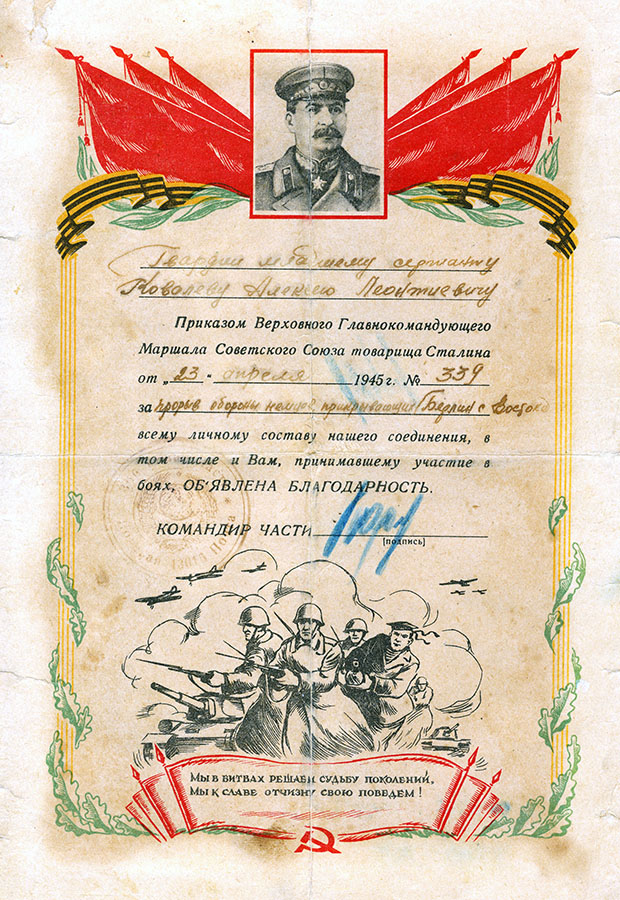 Гвардии младшему сержанту
Ковалеву Алексею Леонтиевичу
Приказом Верховного Главнокомандующего
Маршала Советского Союза товарища Сталина
от „23" апреля 1945 г. № 339
за прорыв обороны немцев, прикрывающих Берлин с Востока
всему личному составу нашего соединения, в
том числе и Вам, принимавшему участие в
боях, ОБ'ЯВЛЕНА БЛАГОДАРНОСТЬ.
КОМАНДИР ЧАСТИ
[подпись]
МЫ В БИТВАХ РЕШАЕМ СУДЬБУ ПОКОЛЕНИЙ,
МЫ К СЛАВЕ ОТЧИЗНУ СВОЮ ПОВЕДЕМ!